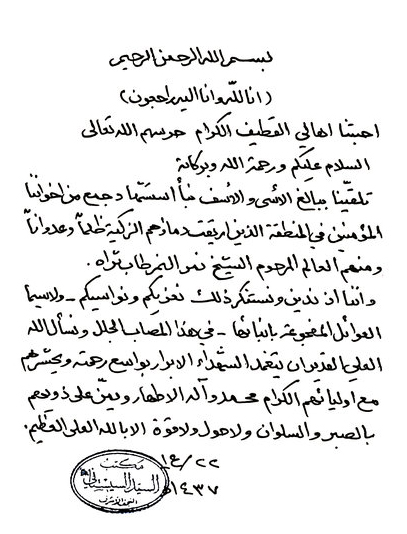 بسم الله الرحمن الرحيم
(انا لله وانا اليه راجعون)
احبتنا اهالي القطيف الكرام حرسهم الله تعالى
السلام عليكم ورحمة الله وبركاته
تلقينا ببالغ الأسى والأسف نبأ استشهاد جمع من اخواننا
المؤمنين في المنطقة الذين اريقت دماؤهم الزكية ظلماً وعدواناً
ومنهم العالم المرحوم الشيخ نمر النمر طاب ثراه.
واننا اذ ندين ونستنكر ذلك نعزيكم ونواسيكم - ولاسيما
العوائل المفجوعة بابنائها - في هذا المصاب الجلل ونسأل الله
العلي القدير ان يتغمد الشهداء الابرار بواسع رحمته ويحشرهم
مع اوليائهم الكرام محمد وآله الاطهار ويمنّ على ذويهم
بالصبر والسلوان ولا حول ولا قوة الا بالله العلي العظيم.
٢٢/ع١
١٤٣٧هـ
مكتب
السيد السيستاني
النجف الأشرف